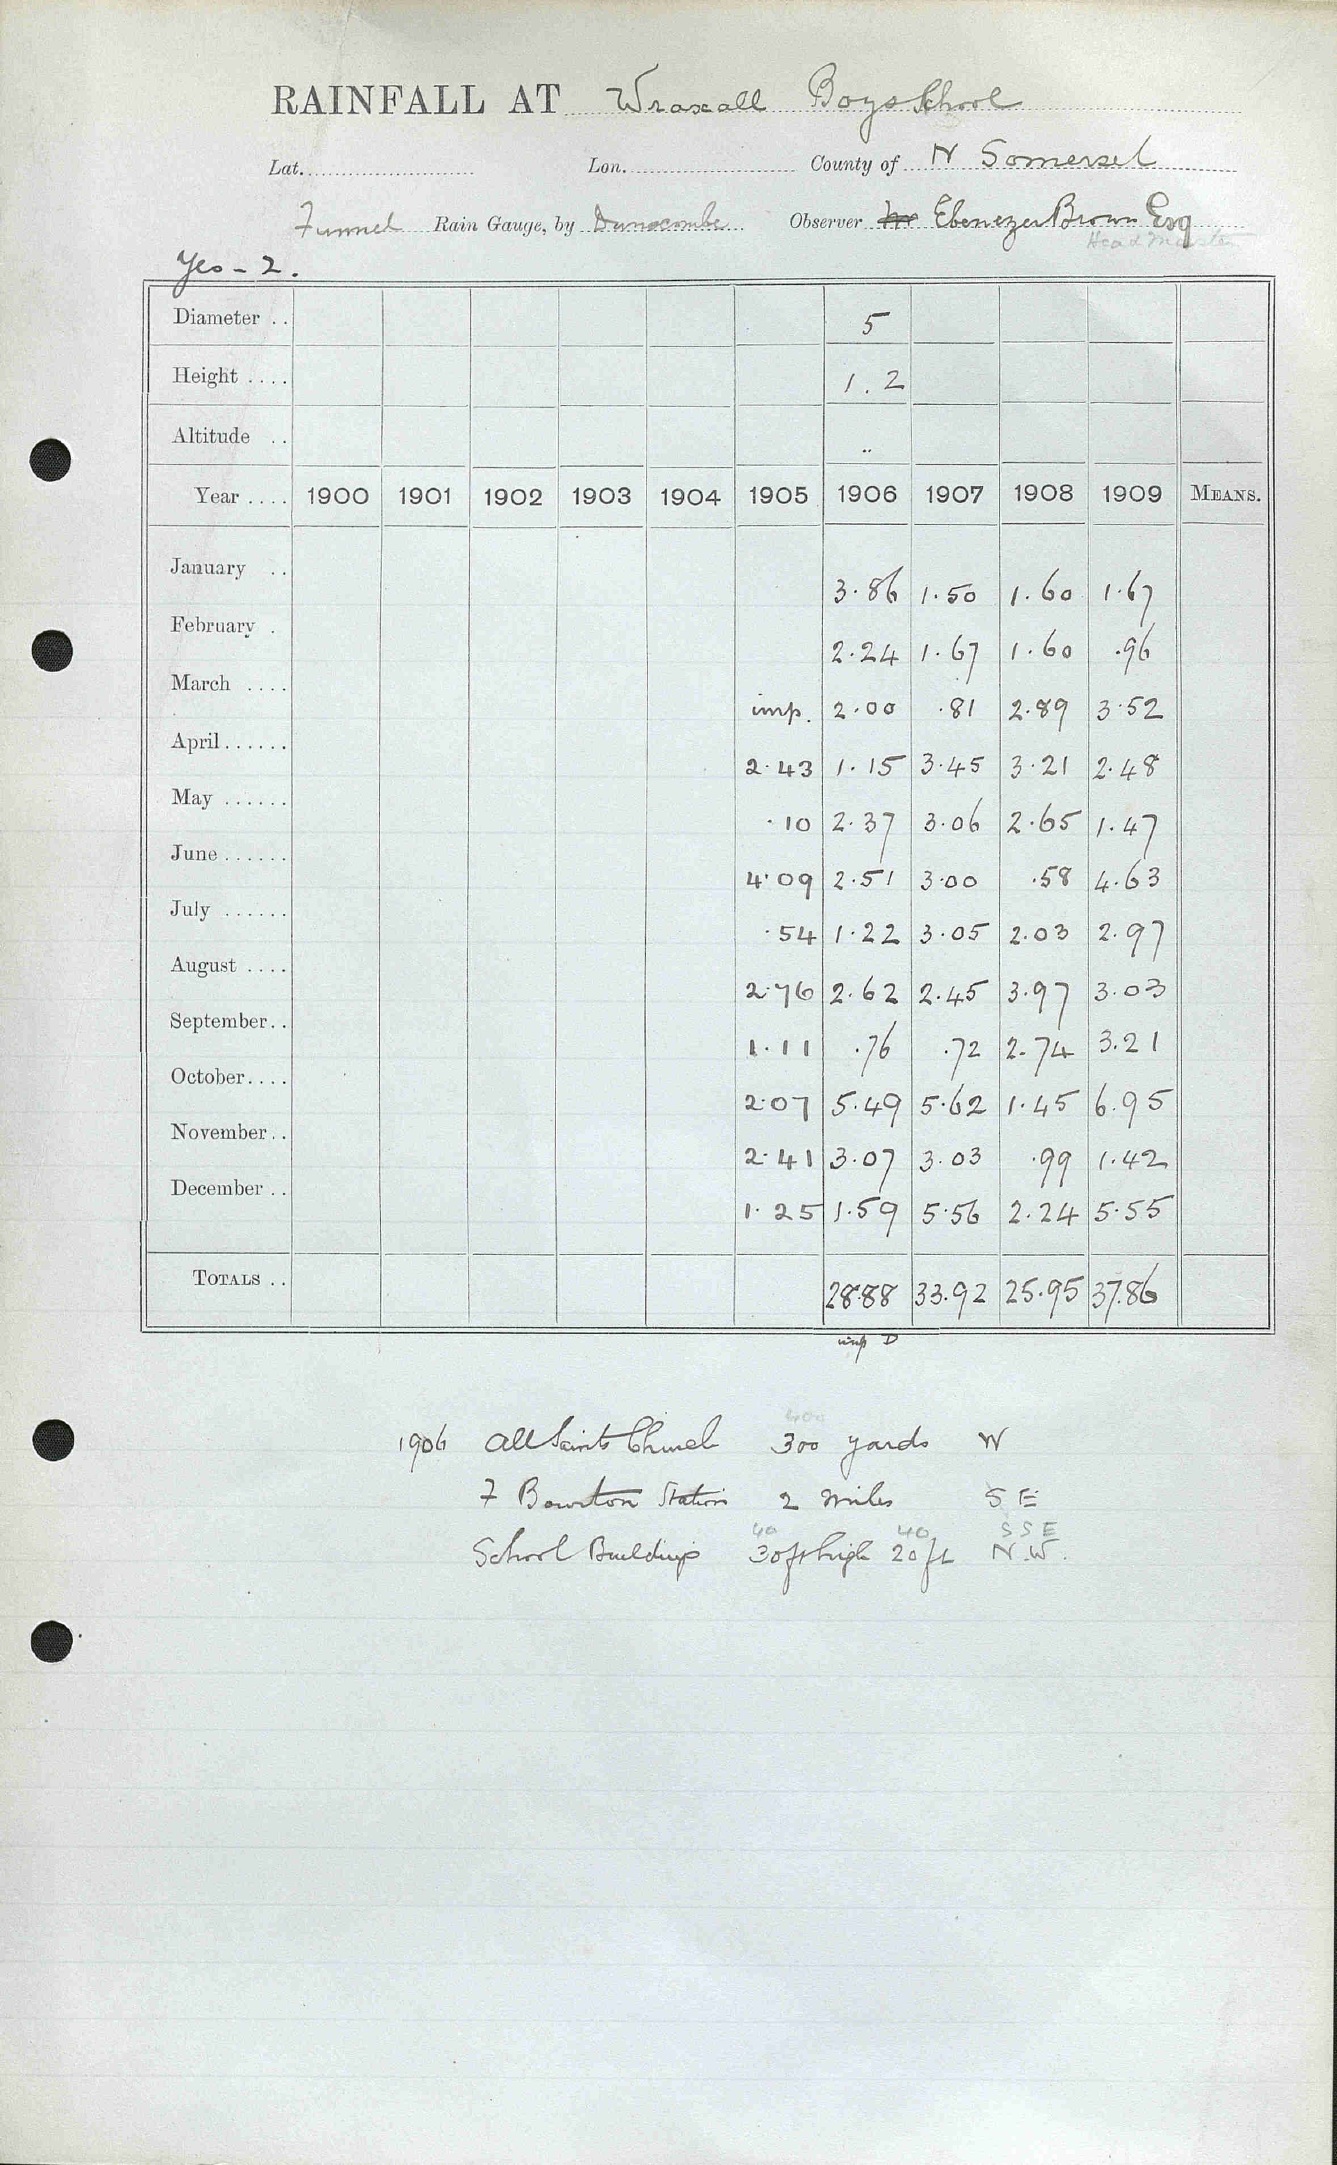 RAINFALL AT Wraxall Boys School
Lat. Lon. County of N Somerset
Funnel Rain Gauge, by Observer Ebenezer Brown Esq
Head Master
Yes - 2.
Diameter .. 5
Height .... 1.2
Altitude .. ..
Year .... 1900 1901 1902 1903 1904 1905 1906 1907 1908 1909 MEANS.
January .. 3.86 1.50 1.60 1.67
February . 2.24 1.67 1.60 .96
March .... imp. 2.00 .81 2.89 3.52
April...... 2.43 1.15 3.45 3.21 2.48
May ...... .10 2.37 3.06 2.65 1.47
June...... 4.09 2.51 3.00 .58 4.63
July ...... .54 1.22 3.05 2.03 2.97
August .... 2.76 2.62 2.45 3.97 3.03
September.. 1.11 .76 .72 2.74 3.21
October.... 2.07 5.49 5.62 1.45 6.95
November.. 2.41 3.07 3.03 .99 1.42
December .. 1.25 1.59 5.56 2.24 5.55
TOTALS .. 28.88 33.92 25.95 37.86
imp D
400
1906 All Saints Church 300 yards W
F Bourton Station 2 miles S E
40 40 S S E
School Buildings 30ft high 20 ft N.W.